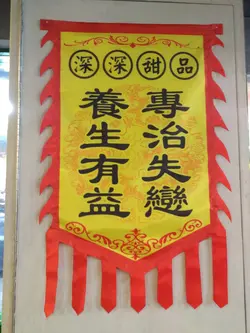 深深甜品
專治失戀
養生有益